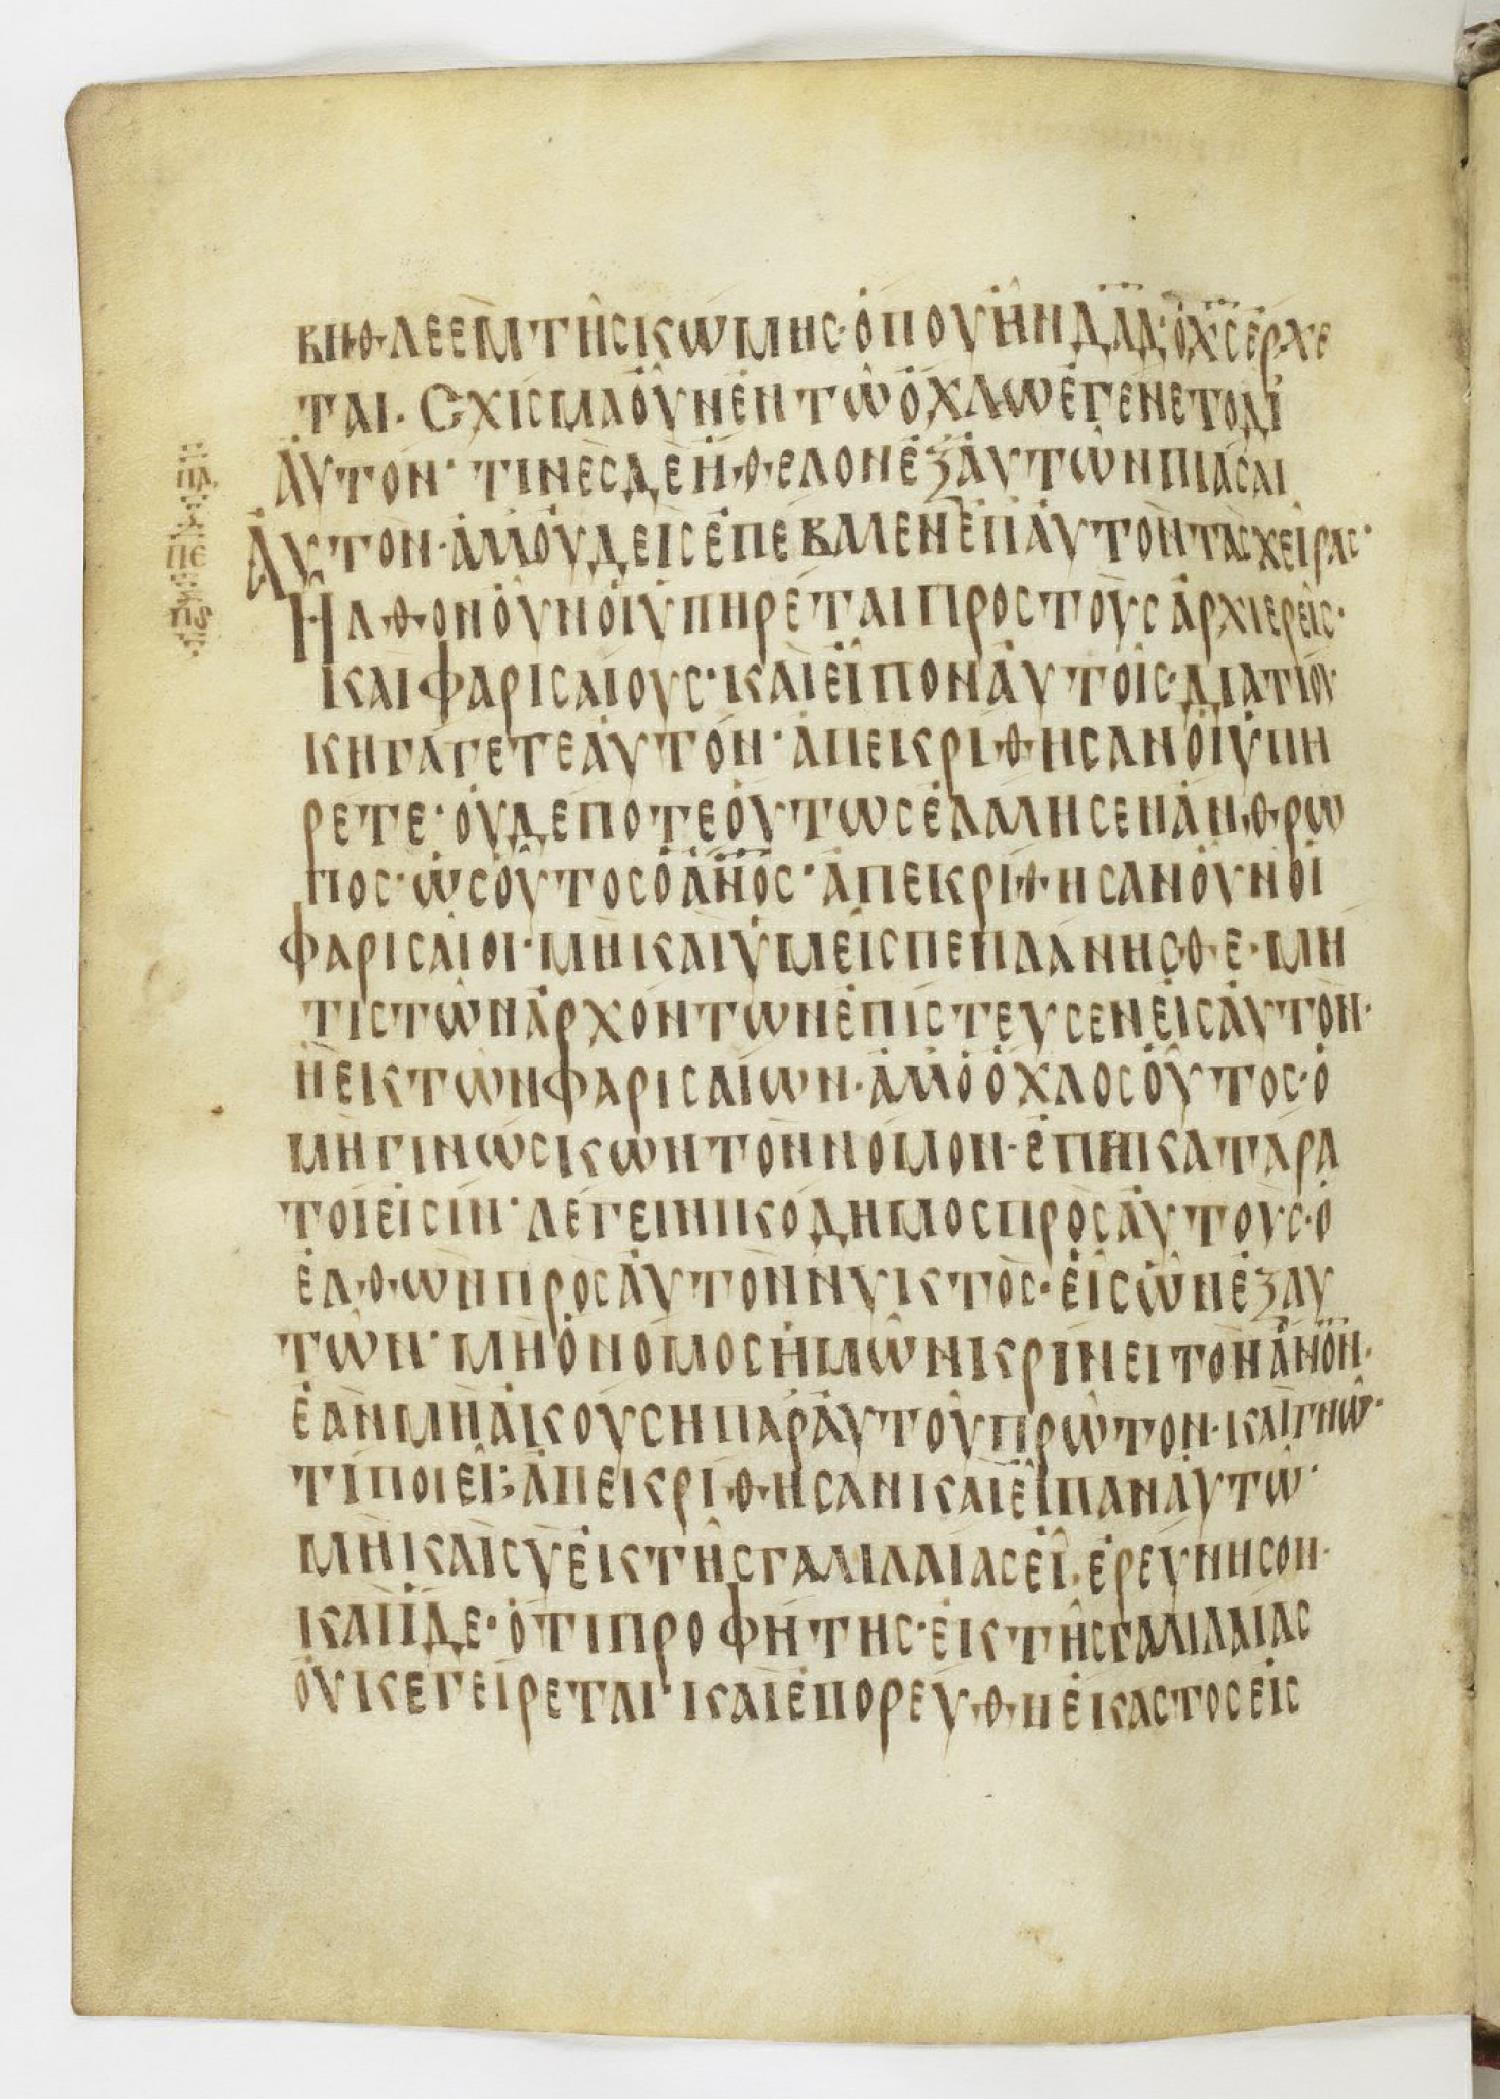 ΒΗΘΛΕΕΜ ΤΗ͂Ϲ ΚΩΜΗϹ· ὍΠΟΥ ἦΝ ΔᾹΔ· Ὁ ΧϹ̄ ἘΡΧΕ
ΤΑΙ· ϹΧΙϹΜΑ ΟὖΝ ἘΝ ΤΩ͂ ὈΧΛΩ ἘΓΕΝΕΤΟ ΔΙ
ἈΥΤΟΝ· ΤΙΝΕϹ ΔΕ ἨΘΕΛΟΝ ἘΞ ἈΥΤΩ͂Ν ΠΙΑϹΑΙ
ἈΥΤΟΝ· ἈΛΛ ΟΥ̓ΔΕΙϹ ἘΠΕΒΑΛΕΝ ἘΠ ἈΥΤΟΝ ΤΑϹ ΧΕΙΡΑϹ·
ἮΛΘΟΝ ΟὖΝ ΟἹ ὙΠΗΡΕΤΑΙ ΠΡΟϹ ΤΟΥϹ ἈΡΧΙΕΡΕΙ͂Ϲ·
ΚΑΙ ΦΑΡΙϹΑΙΟΥϹ· ΚΑΙ ΕἾΠΟΝ ἈΥΤΟΙϹ· ΔΙΑΤΙ ΟΥ
Κ ΗΓΑΓΕΤΕ ἈΥΤΟΝ· ἈΠΕΚΡΙΘΗϹΑΝ ΟἹ ὙΠΗ
ΡΕΤΕ· ΟΥ̓ΔΕΠΟΤΕ ΟὙΤΩϹ ἘΛΑΛΗϹΕΝ ἈΝΘΡΩ
ΠΟϹ· ὩϹ ΟὟΤΟϹ Ὁ ἈΝΟϹ̄· ἈΠΕΚΡΙΘΗϹΑΝ ΟὖΝ ΟἹ
ΦΑΡΙϹΑΙΟΙ· ΜΗ ΚΑΙ ὙΜΕΙϹ ΠΕΠΛΑΝΗϹΘΕ· ΜΗ
ΤΙϹ ΤΩ͂Ν ἈΡΧΟΝΤΩΝ ἘΠΙϹΤΕΥϹΕΝ ΕἸϹ ἈΥΤΟΝ·
Ἢ ΕΚ ΤΩΝ ΦΑΡΙϹΑΙΩΝ· ἈΛΛ Ὁ ὈΧΛΟϹ ΟὟΤΟϹ· Ὁ
ΜΗ ΓΙΝΩϹΚΩΝ ΤΟΝ ΝΟΜΟΝ· ἘΠΗΚΑΤΑΡΑ
ΤΟΙ ΕἸϹΙΝ· ΛΕΓΕΙ ΝΙΚΟΔΗΜΟϹ ΠΡΟϹ ἈΥΤΟΥϹ· Ὁ
ἘΛΘΩΝ ΠΡΟϹ ἈΥΤΟΝ ΝΥΚΤΟϹ· ΕἿϹ ὬΝ ἘΞ ΑΥ
ΤΩ͂Ν· ΜΗ Ὁ ΝΟΜΟϹ ἩΜΩ͂Ν ΚΡΙΝΕΙ ΤΟΝ ἈΝΟΝ̄·
ἘΑΝ ΜΗ ἈΚΟΥϹΗ ΠΑΡ ἈΥΤΟΥ͂ ΠΡΩ͂ΤΟΝ· ΚΑΙ ΓΝΩ͂·
ΤΙ ΠΟΙΕΙ͂; ἈΠΕΚΡΙΘΗϹΑΝ ΚΑΙ ΕἾΠΑΝ ἈΥΤΩ͂·
ΜΗ ΚΑΙ ϹΥ ἘΚ ΤΗ͂Ϲ ΓΑΛΙΛΑΙΑϹ ΕἾ· ἘΡΕΥΝΗϹΟΝ·
ΚΑΙ ἸΔΕ· ὉΤΙ ΠΡΟΦΗΤΗϹ· ἘΚ ΤΗ͂Ϲ ΓΑΛΙΛΑΙΑϹ
ΟΥ̓Κ ΕΓΕΙΡΕΤΑΙ· ΚΑΙ ἘΠΟΡΕΥΘΗ ἙΚΑϹΤΟϹ ΕἸϹ
ΠΔ
ΠΕ
ΠϚ